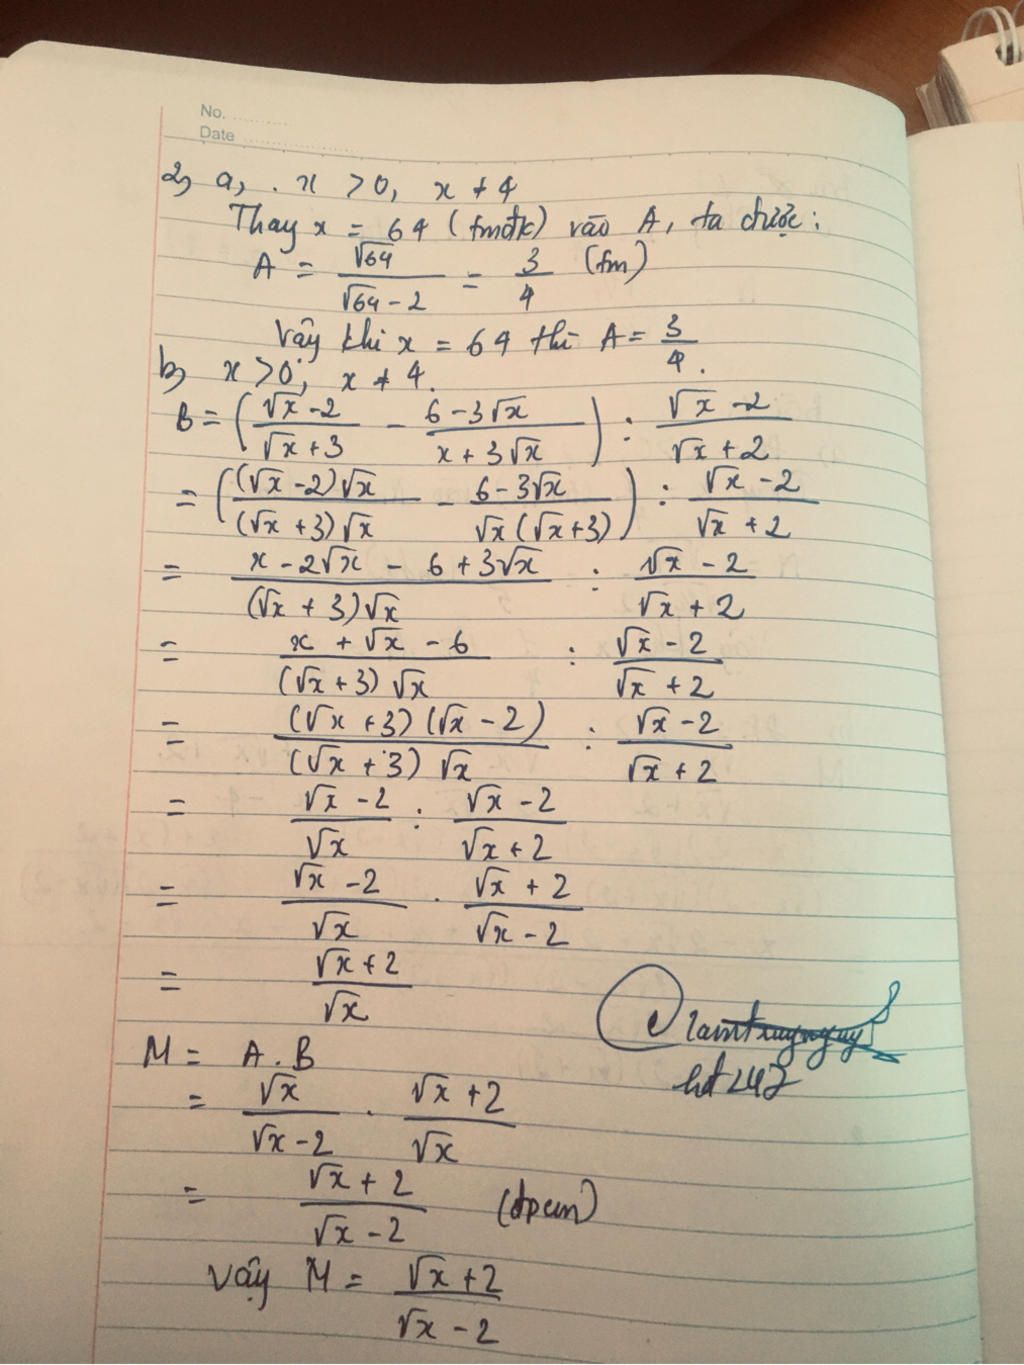 No. ..........
Date ....................
2, a, . x > 0, x ≠ 4
Thay x = 64 (tmđk) vào A, ta được:
A = √64 / (√64 - 2) = 3/4 (tm)
Vậy khi x = 64 thì A = 3/4.
b, x > 0; x ≠ 4.
B = ((√x - 2)/(√x + 3) - (6 - 3√x)/(x + 3√x)) : (√x - 2)/(√x + 2)
= (((√x - 2)√x)/((√x + 3)√x) - (6 - 3√x)/(√x(√x + 3))) : (√x - 2)/(√x + 2)
= (x - 2√x - 6 + 3√x)/((√x + 3)√x) : (√x - 2)/(√x + 2)
= (x + √x - 6)/((√x + 3)√x) : (√x - 2)/(√x + 2)
= ((√x + 3)(√x - 2))/((√x + 3)√x) : (√x - 2)/(√x + 2)
= (√x - 2)/√x : (√x - 2)/(√x + 2)
= (√x - 2)/√x . (√x + 2)/(√x - 2)
= (√x + 2)/√x
M = A . B
= √x/(√x - 2) . (√x + 2)/√x
= (√x + 2)/(√x - 2) (đpcm)
Vậy M = (√x + 2)/(√x - 2)